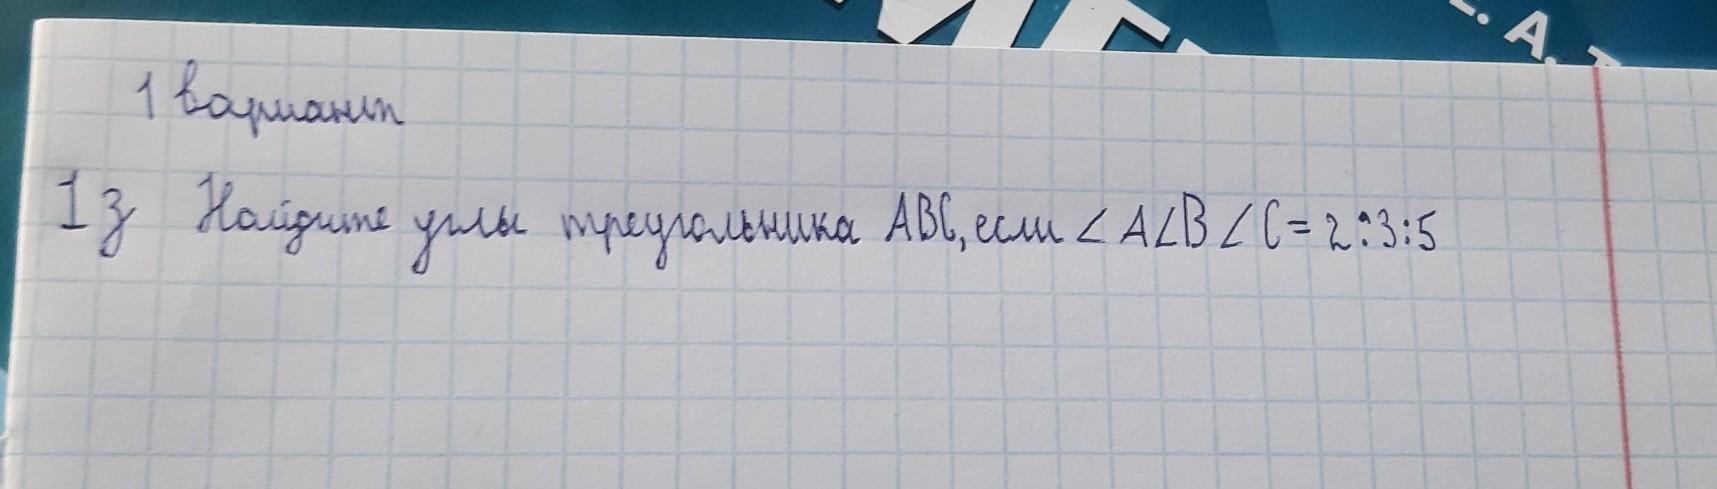 1 вариант
1з Найдите углы треугольника ABC, если ∠A∠B∠C=2:3:5